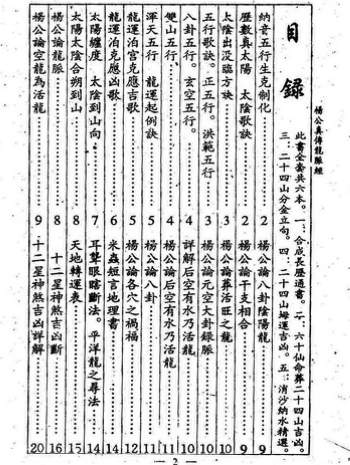 楊公真傳龍脈經
此書全套共六本。一、合成長歷通書。二、六十仙命葬二十四山吉凶。
三、二十四山分金立句。四、二十四山坶運吉凶。五、消沙納水精選。
目錄
納音五行生克制化………2
歷數真太陽 太陰歌訣………2
太陰出沒臨方訣………3
五行歌訣。正五行。洪範五行………3
八卦五行。玄空五行。………4
雙山五行。………4
渾天五行 龍運起例訣………5
龍運泊宮克應吉歌………5
龍運泊克應凶歌………6
太陽纏度 太陰到山向………7
太陽太陰合朔到山………8
楊公論龍脈………8
楊公論空龍為活龍………9
楊公論八卦陰陽龍………9
楊公論干支相合………9
楊公論葬活旺之龍………10
楊公論元空大卦錄脈………10
詳解后空有水乃活龍………10
楊公論后空有水乃活龍………11
楊公論八卦………11
楊公論各穴之禍福………12
米癲短言地理書………14
耳聾眼瞎斷法。平洋龍之尋法………14
天地轉運表………15
十二星神煞吉凶斷………16
十二星神煞吉凶詳解………20
— 2 —